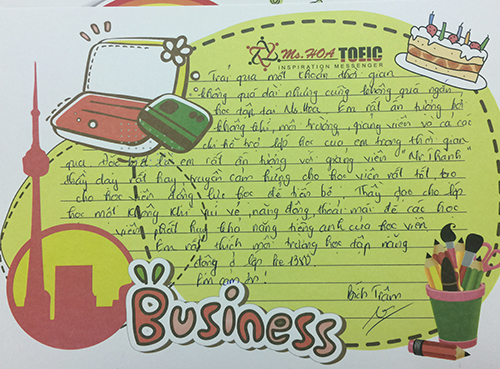 Ms.HOA TOEIC
INSPIRATION MESSENGER
Trải qua một khoảng thời gian
không quá dài nhưng cũng không quá ngắn
học tập tại Ms Hoa. Em rất ấn tượng bởi
không khí, môi trường, giảng viên và cả các
chị hỗ trợ lớp học của em trong thời gian
qua. Đặc biệt là em rất ấn tượng với giảng viên "Mr Thành"
thầy dạy rất hay truyền cảm hứng cho học viên rất tốt, tạo
cho học viên động lực học để tiến bộ. Thầy tạo cho lớp
học một không khí vui vẻ, năng động, thoải mái để các học
viên phát huy khả năng tiếng anh của học viên.
Em rất thích môi trường học tập năng
động ở lớp Pre
Em cảm ơn!
Bích Trâm
Business